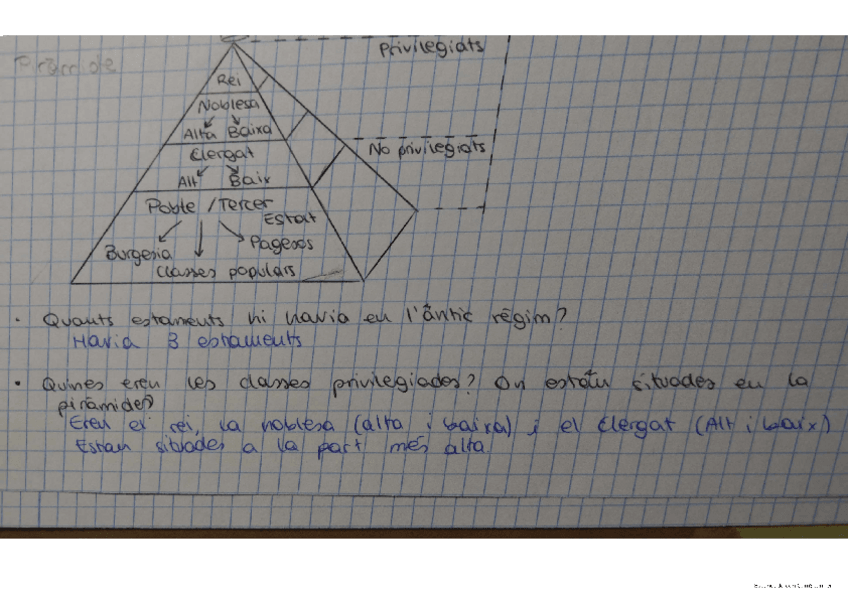 Piràmide
Privilegiats
Rei
Noblesa
Alta Baixa
No privilegiats
Clergat
Alt Baix
Poble / Tercer
Estat
Burgesia Pagesos
Classes populars
• Quants estaments hi havia en l'àntic règim?
Havia 3 estaments
• Quines eren les classes privilegiades? On estàn situades en la
piràmide?
Eren el rei, la noblesa (alta i baixa) i el clergat (Alt i baix)
Estan situades a la part més alta.